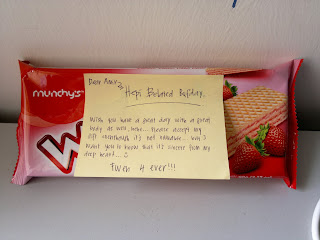 Dear
Hepi Belated Bufday.
munchy's
W
Wish you have a great day with a great
body as well, hehe... Please accept my
gift eventhough it's not valuable... but I
want you to know that it's sincere from my
deep heart...
Fwen 4 ever!!!